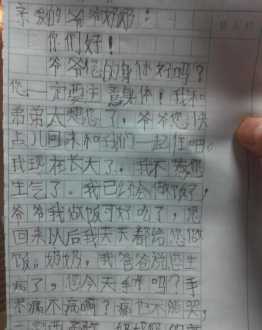 亲爱的爷爷奶奶：
你们好！
爷爷您的身体好吗？
您一定要注意身体！我和
弟弟太想您了，爷爷您快
点儿回来和我们一起住吧。
我现在长大了。我不惹您
生气了。我已经会做饭了，
爷爷我做饭可好吃了，您
回来以后我天天都给您做
饭。奶奶，我爸爸说您生
病了，您今天手术吗？手
术痛不痛啊？痛也不能哭，